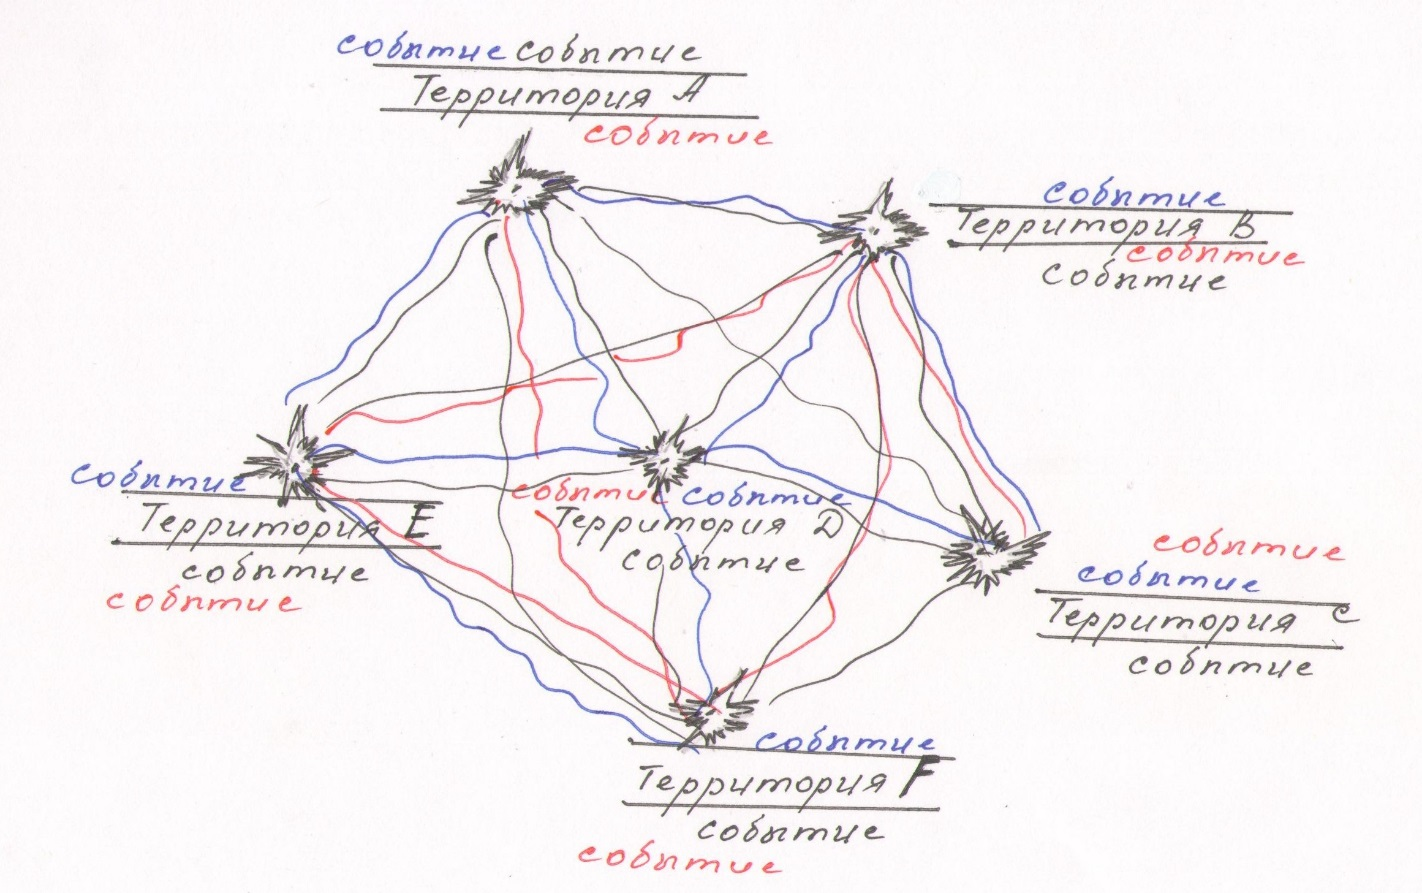 событие событие
Территория А
событие
событие
Территория В
событие
событие
событие
Территория E
событие
событие
событие событие
Территория D
событие
событие
событие
Территория с
событие
событие
Территория F
событие
событие